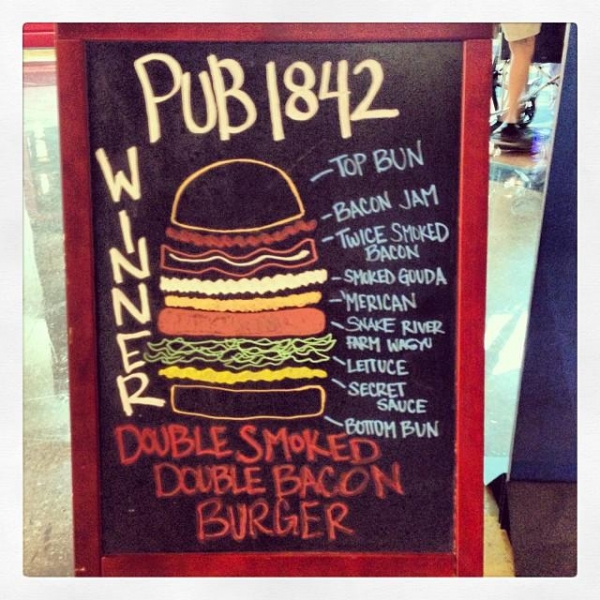 PUB 1842
WINNER
TOP BUN
BACON JAM
TWICE SMOKED
BACON
SMOKED GOUDA
'MERICAN
SNAKE RIVER
FARM WAGYU
LETTUCE
SECRET
SAUCE
BOTTOM BUN
DOUBLE SMOKED
DOUBLE BACON
BURGER